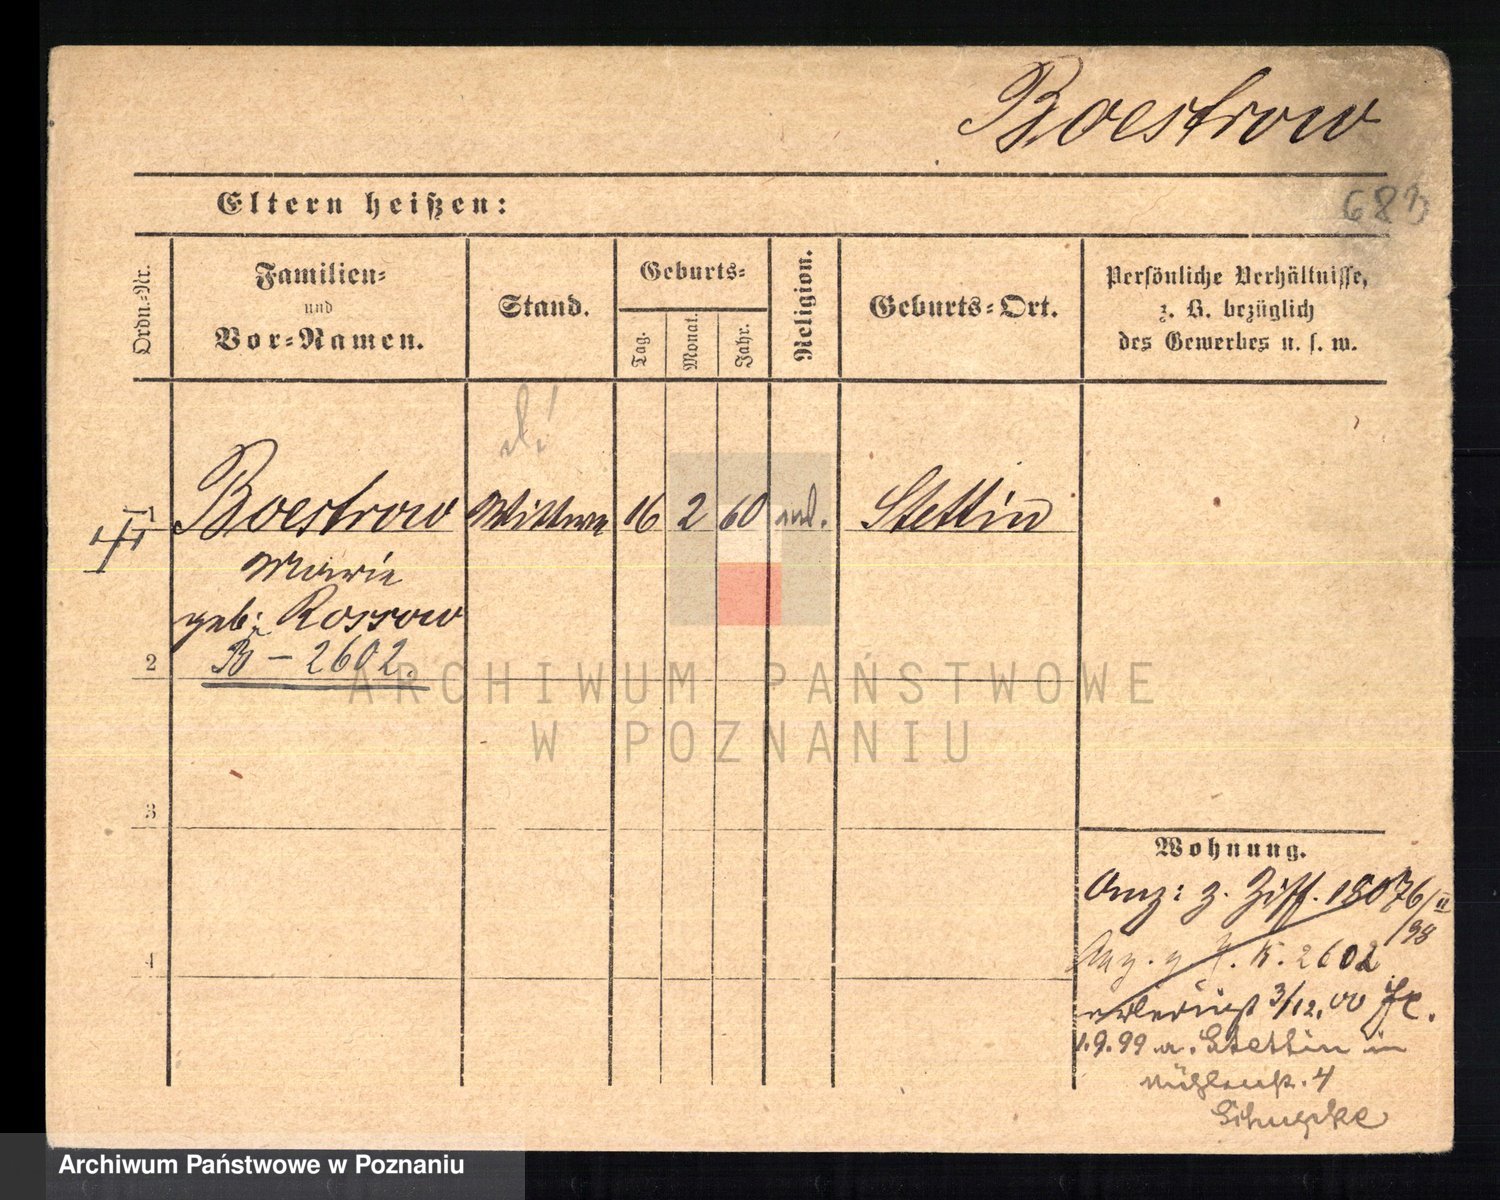 Boestrow
683
Eltern heißen:
Ordn.-Nr.
Familien-
und
Vor-Namen.
Stand.
Geburts-
Tag.
Monat.
Jahr.
Religion.
Geburts-Ort.
Persönliche Verhältnisse,
z. B. bezüglich
des Gewerbes u. s. w.
1 Boestrow Wittwe 16 2 60 Stettin
Marie
geb: Rossow
2 B - 2602.
3
4
Wohnung.
Anz: z. Ziff. 18076/II
/98
Anz. z. B. 2602
3/12.00
1.9.99 a. Stettin in
Mühlenstr. 4
ARCHIWUM PAŃSTWOWE
W POZNANIU
Archiwum Państwowe w Poznaniu